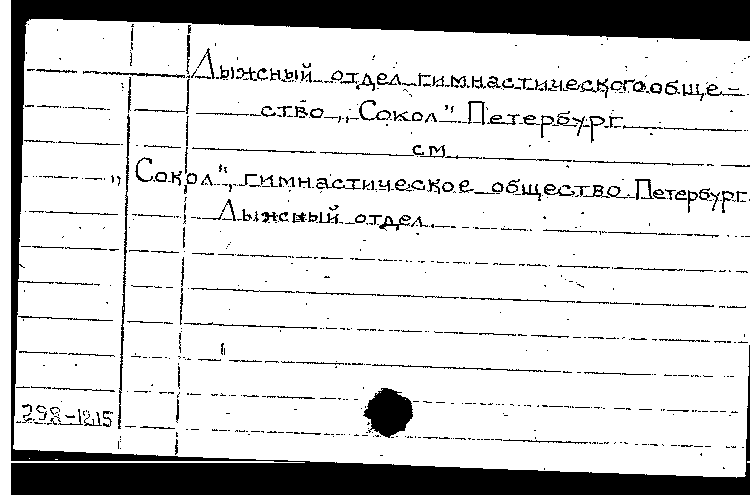 Лыжный отдел гимнастического обще-
ство „Сокол" Петербург.
см.
„Сокол", гимнастическое общество. Петербург.
Лыжный отдел.
298-1215